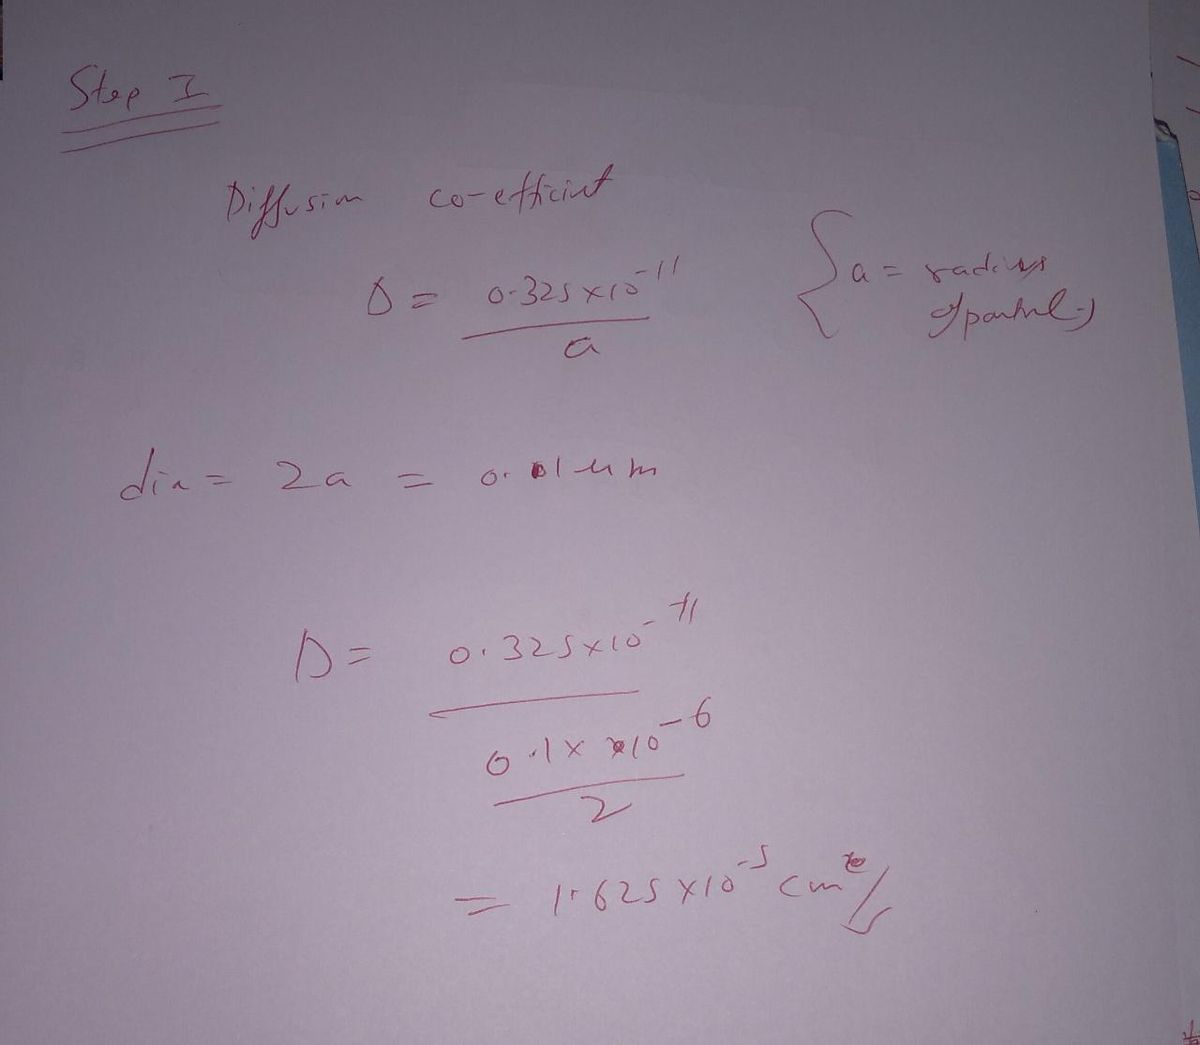 Step I
Diffusion co-efficient
D = 0.325×10^-11 / a { a = radius
of particles
dia = 2a = 0.01 um
D = 0.325×10^-11
0.1× ×10^-6
2
= 1.625×10^-5 cm^2/s